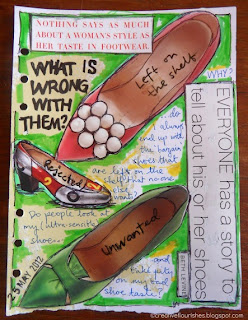 NOTHING SAYS AS MUCH
ABOUT A WOMAN'S STYLE AS
HER TASTE IN FOOTWEAR.
WHAT IS
WRONG
WITH
THEM?
Left on
the shelf
WHY?
EVERYONE has a story to
tell about his or her shoes
BETH LEVINE
...do
I always
end up with
the bargain
shoes that
are left on the
shelf that no one
else
wants?
Rejected
Do people look at
my (ultra sensible)
shoe...
Unwanted
...and
take pity
on my bad
shoe taste?
25 MAY 2012
©creativeflourishes.blogspot.com